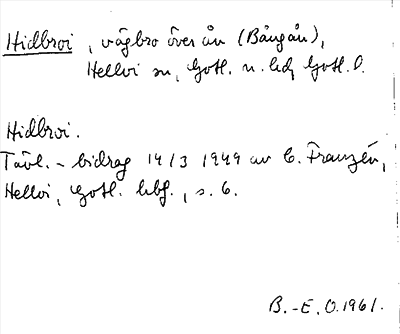 Hidbroi, vägbro över ån (Bångån),
Hellvi sn, Gotl. n. hd, Gotl. O.
Hidbroi.
Tävl.-bidrag 14/3 1949 av C. Franzén,
Hellvi, Gotl. hbf., s. 6.
B.-E. O. 1961.